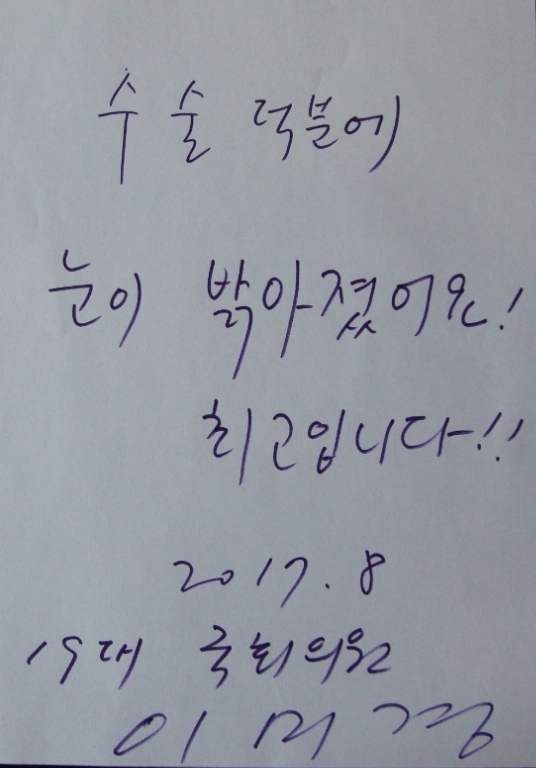 수술 덕분에
눈이 밝아졌어요!
최고입니다!!
2017. 8
19대 국회의원
이미경